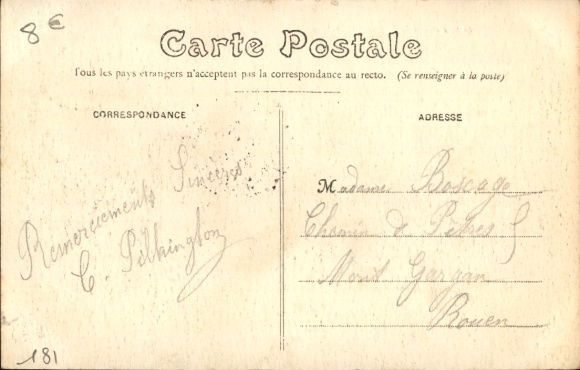 8€
Carte Postale
Tous les pays étrangers n'acceptent pas la correspondance au recto. (Se renseigner à la poste)
CORRESPONDANCE
ADRESSE
Remerciements Sincères
C. Pilkington
Madame Boscage
Chemin de Pitres 5
Mont Gargan
Rouen
181